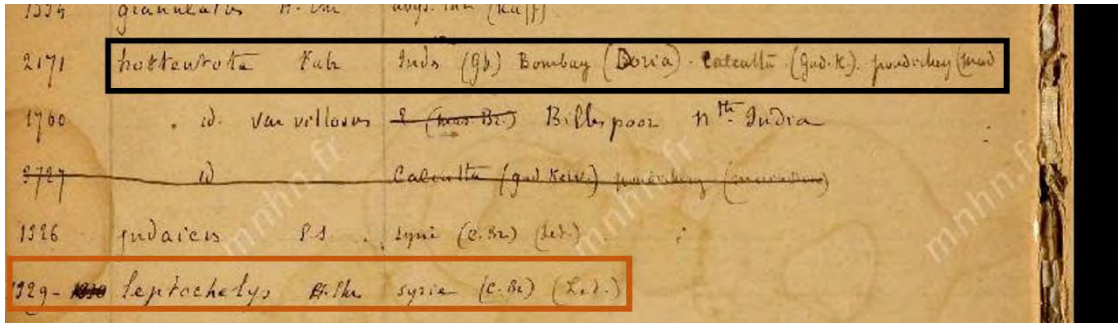 1334 granulatus H. var abyss. (Raff)
2171 hottentota Fab Inds (Gb) Bombay (Doria). Calcutta (Gad. K.). pondichery (mad
1760 . id. var villosus Billespoor nth. India
3727 id Calcutta (gad. Keiv.) pondichery
1326 judaicus S.S. syri (C. Br.) (Led.)
1329- leptochelys H. Ehr syrie (C. Br.) (Led.)
mnhn.fr
mnhn.fr
mnhn.fr
mnhn.fr